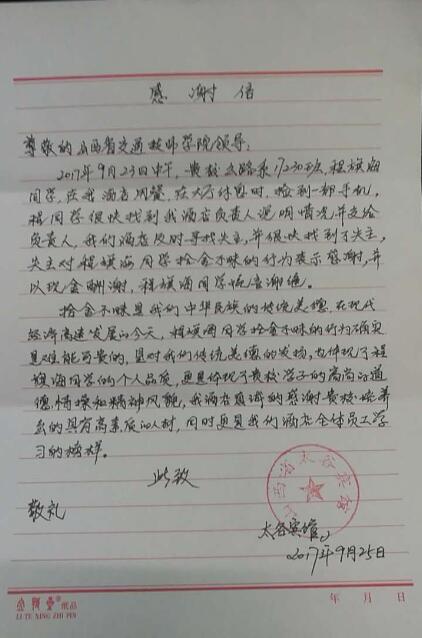 感谢信
尊敬的山西省交通技师学院领导：
2017年9月23日中午，贵校公路系17230班，程旗海
同学，在我酒店用餐，在大厅休息时，捡到一部手机，
程同学很快找到我酒店负责人说明情况并交给
负责人，我们酒店及时寻找失主，并很快找到了失主，
失主对程旗海同学拾金不昧的行为表示感谢，并
以现金酬谢，程旗海同学婉言谢绝。
拾金不昧是我们中华民族的传统美德，在现代
经济高速发展的今天，程旗海同学拾金不昧的行为确实
是难能可贵的，是对我们传统美德的发扬，也体现了程
旗海同学的个人品质，更是体现了贵校学子的高尚的道
德情操和精神风貌，我酒店真诚的感谢贵校培养
出的具有高素质的人材，同时更是我们酒店全体员工学
习的榜样。
此致
敬礼
山西省太谷宾馆
太谷宾馆
2017年9月25日
年 月 日
纸品
LI TE XING ZHI PIN